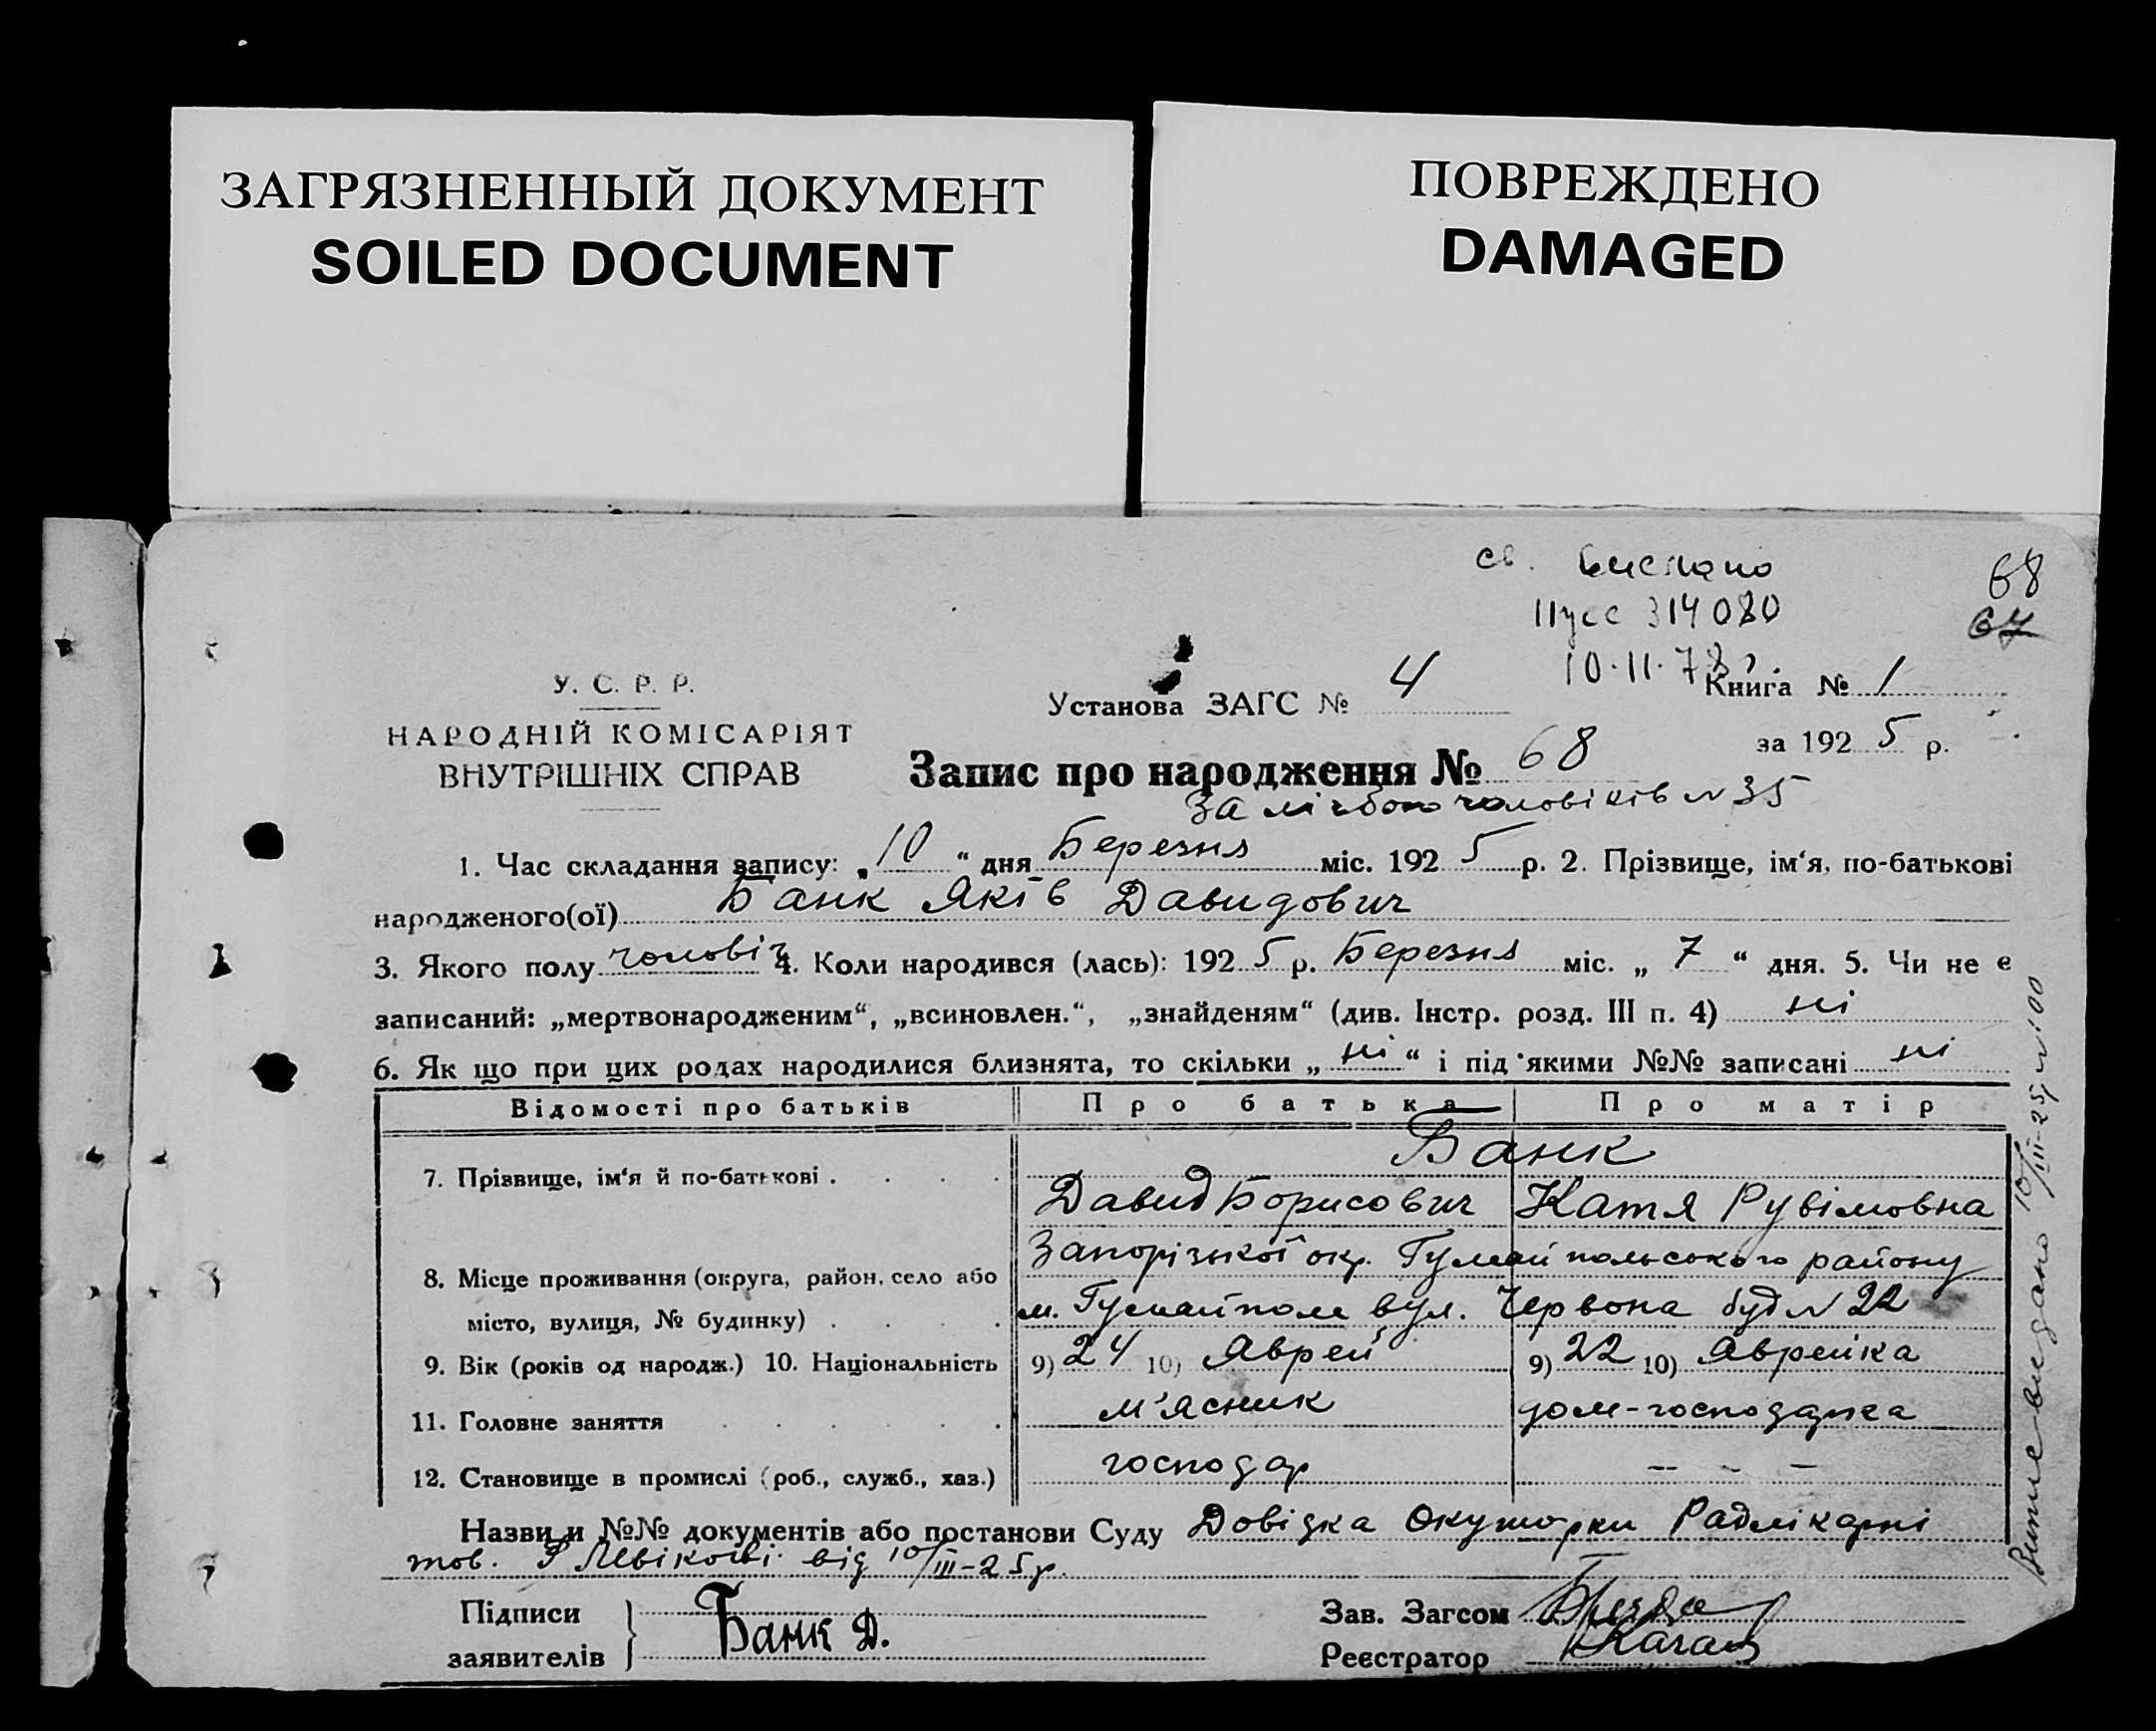 ЗАГРЯЗНЕННЫЙ ДОКУМЕНТ
SOILED DOCUMENT
ПОВРЕЖДЕНО
DAMAGED
св. виспапо
314080
10.11.78 г.
68
67
У. С. Р. Р.
НАРОДНІЙ КОМІСАРІЯТ
ВНУТРІШНІХ СПРАВ
Установа ЗАГС № 4
Книга № 1
за 1925 р.
Запис про народження № 68
За лічбою чоловіків № 35
1. Час складання запису: „10“ дня Березня міс. 1925 р. 2. Прізвище, ім‘я, по-батькові
народженого(ої) Банк Яків Давидович
3. Якого полу чоловіч 4. Коли народився (лась): 1925 р. Березня міс. „7“ дня. 5. Чи не є
записаний: „мертвонародженим“, „всиновлен.“, „знайденям“ (див. Інстр. розд. III п. 4) ні
6. Як що при цих родах народилися близнята, то скільки „ні“ і під якими №№ записані ні
Відомості про батьків Про батька Про матір
7. Прізвище, ім‘я й по-батькові . . . . Банк
Давид Борисович Катя Рувімовна
8. Місце проживання (округа, район, село або Запорізької окр. Гуляйпольського району
місто, вулиця, № будинку) . . . . м. Гуляйполе вул. Червона буд № 22
9. Вік (років од народж.) 10. Національність 9) 24 10) Яврей 9) 22 10) Яврейка
11. Головне заняття . . . . м'ясник дом-господарка
12. Становище в промислі (роб., служб., хаз.) господар — - —
Назви и №№ документів або постанови Суду Довідка Окушорки Радлікарні
тов. від 10/III-25р.
Підписи
заявителів
Банк Д.
Зав. Загсом
Реєстратор
видано 10/III-25р № 100